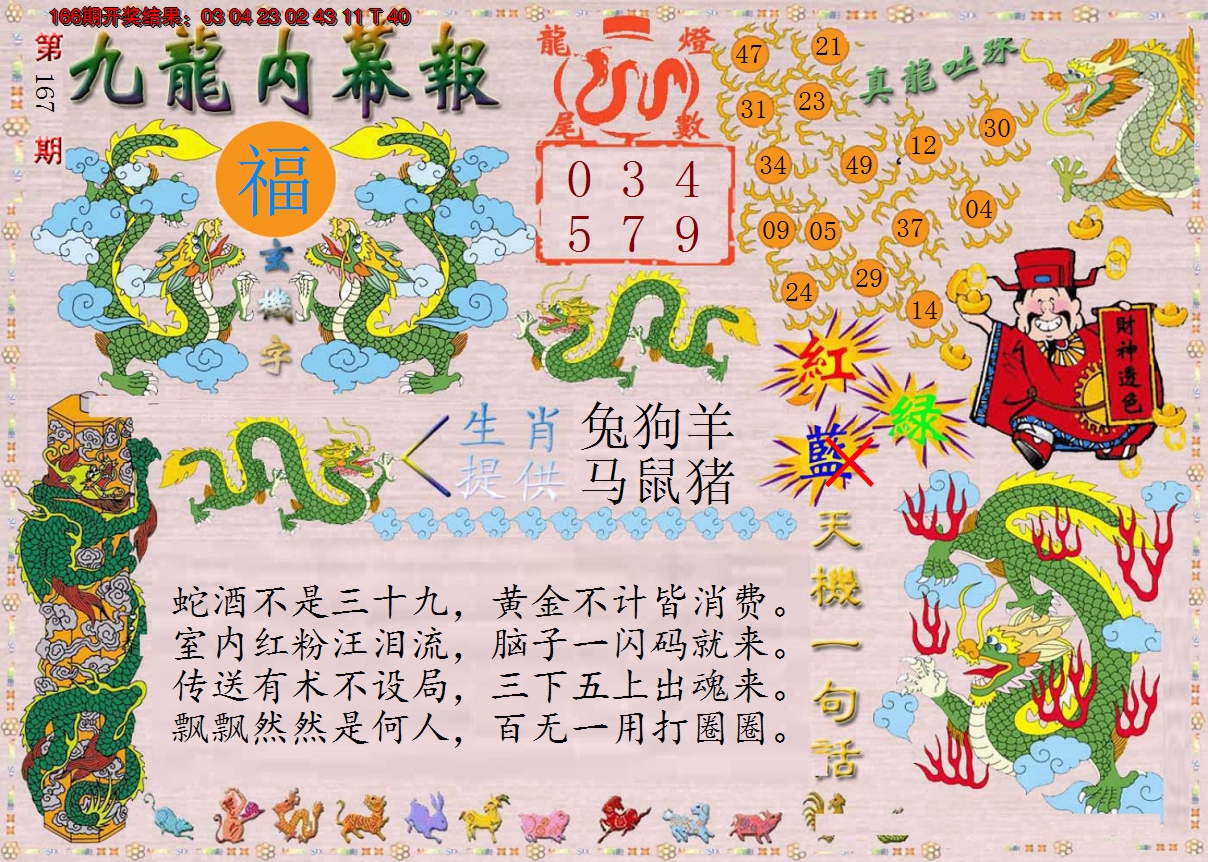 166期开奖结果：03 04 23 02 43 11 T 40
第167期
九龍内幕報
福
玄機字
龍燈
尾數
0 3 4
5 7 9
真龍吐珠
47 21
31 23
34 49 12 30
09 05 37 04
24 29 14
財神透色
紅
綠
藍
生肖
提供
兔狗羊
马鼠猪
天機一句話
蛇酒不是三十九，黄金不计皆消费。
室内红粉汪泪流，脑子一闪码就来。
传送有术不设局，三下五上出魂来。
飘飘然然是何人，百无一用打圈圈。